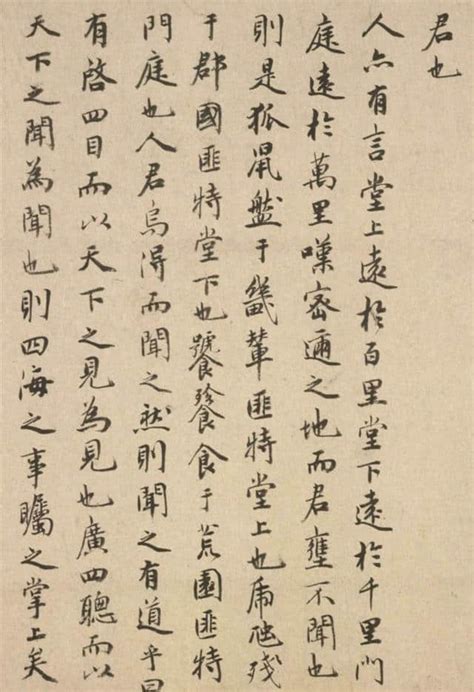 君也
人亦有言堂上遠於百里堂下遠於千里門
庭遠於萬里嘆密邇之地而君壅不聞也
則是狐鼠盤于畿輦匪特堂上也虎虺殘
于郡國匪特堂下也饕餮食于荒圉匪特
門庭也人君烏得而聞之然則聞之有道乎曰
有啓四目而以天下之見為見也廣四聰而以
天下之聞為聞也則四海之事矚之掌上矣